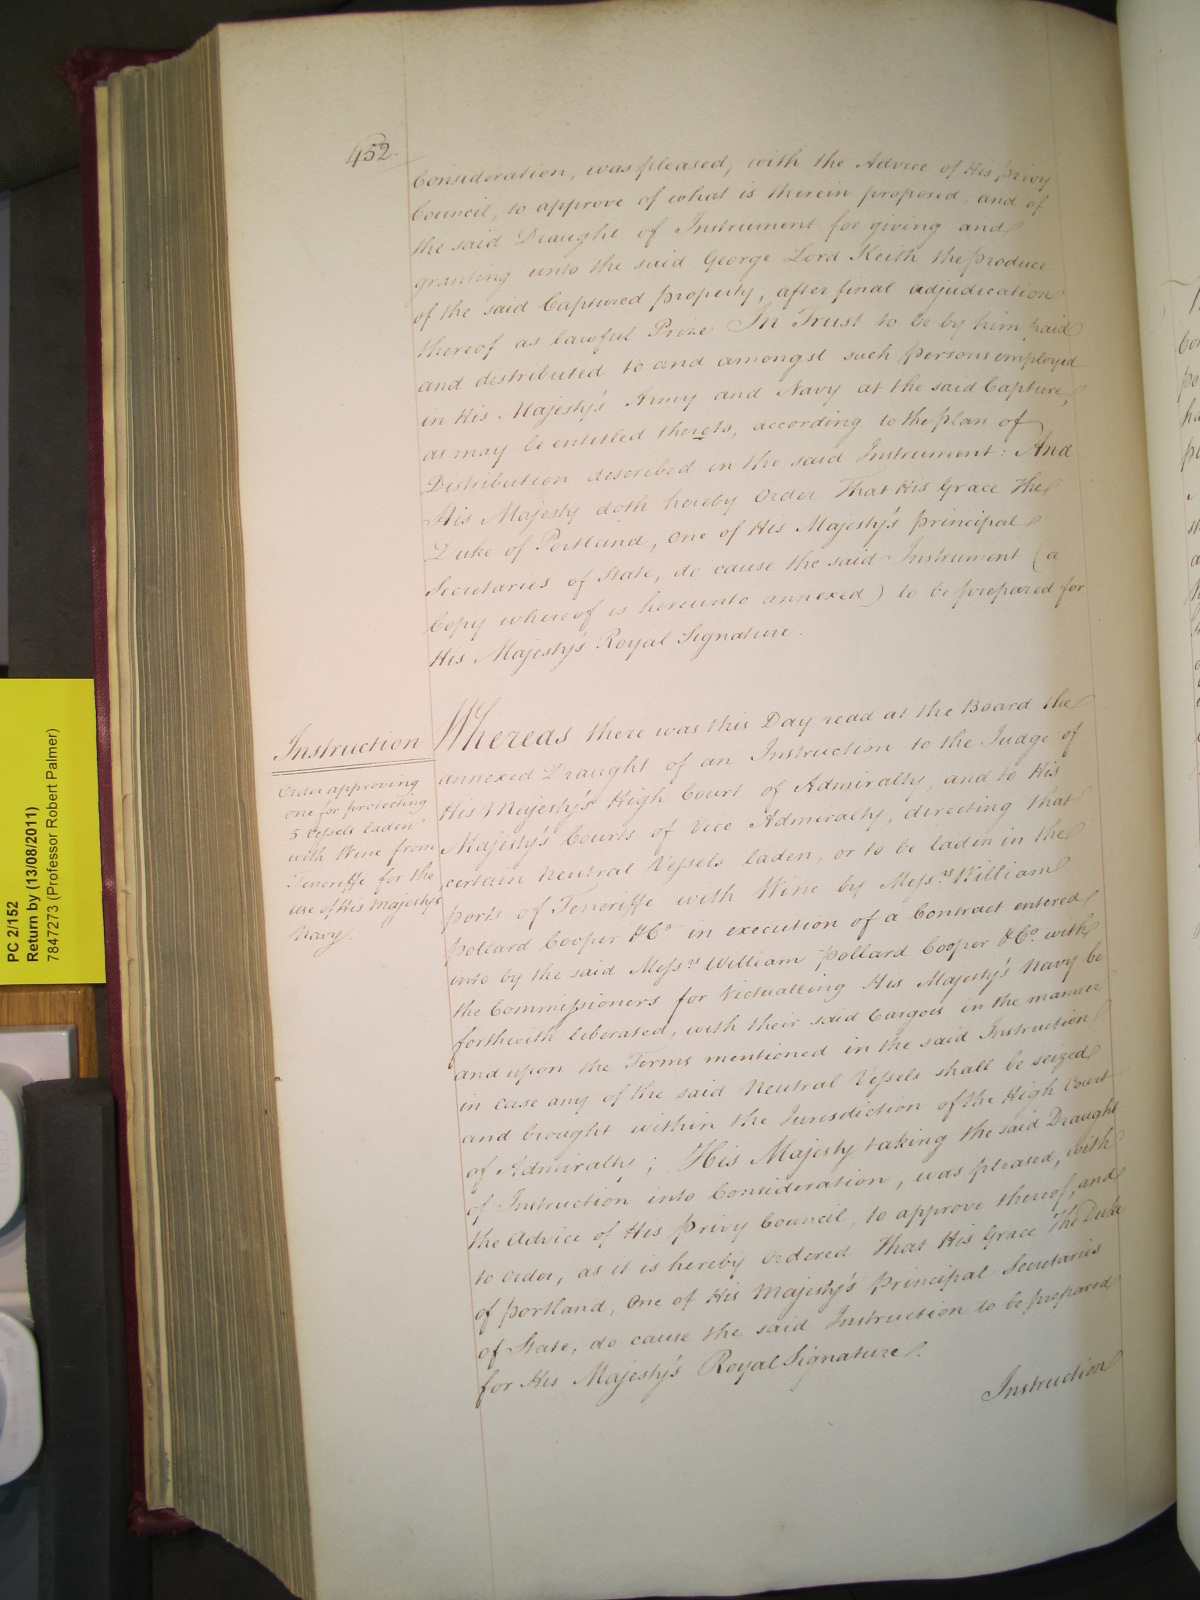 452.
Consideration, was pleased, with the Advice of His Privy
Council, to approve of what is therein proposed, and of
the said Draught of Instrument for giving and
granting unto the said George Lord Keith the produce
of the said Captured property, after final adjudication
thereof as lawful Prize In Trust to be by him paid
and distributed to and amongst such Persons employed
in His Majesty's Army and Navy at the said Capture,
as may be entitled thereto, according to the plan of
Distribution described in the said Instrument: And
His Majesty doth hereby Order That His Grace The
Duke of Portland, One of His Majesty's principal
Secretaries of State, do cause the said Instrument (a
Copy whereof is hereunto annexed) to be prepared for
His Majesty's Royal Signature.
Instruction
Order approving
one for protecting
5 Vessels laden
with Wine from
Teneriffe for the
use of His Majesty's
Navy.
Whereas there was this Day read at the Board the
annexed Draught of an Instruction to the Judge of
His Majesty's High Court of Admiralty, and to His
Majesty's Courts of Vice Admiralty, directing that
certain Neutral Vessels laden, or to be laden in the
ports of Teneriffe with Wine by Messrs William
Pollard Cooper & Co in execution of a Contract entered
into by the said Messrs William Pollard Cooper & Co. with
the Commissioners for Victualling His Majesty's Navy be
forthwith liberated, with their said Cargoes in the manner
and upon the Terms mentioned in the said Instruction
in case any of the said Neutral Vessels shall be seized
and brought within the Jurisdiction of the High Court
of Admiralty; His Majesty taking the said Draught
of Instruction into Consideration, was pleased, with
the Advice of His Privy Council, to approve thereof, and
to Order, as it is hereby Ordered That His Grace The Duke
of Portland, One of His Majesty's Principal Secretaries
of State, do cause the said Instruction to be prepared
for His Majesty's Royal Signature.
Instruction
PC 2/152
Return by (13/08/2011)
7847273 (Professor Robert Palmer)